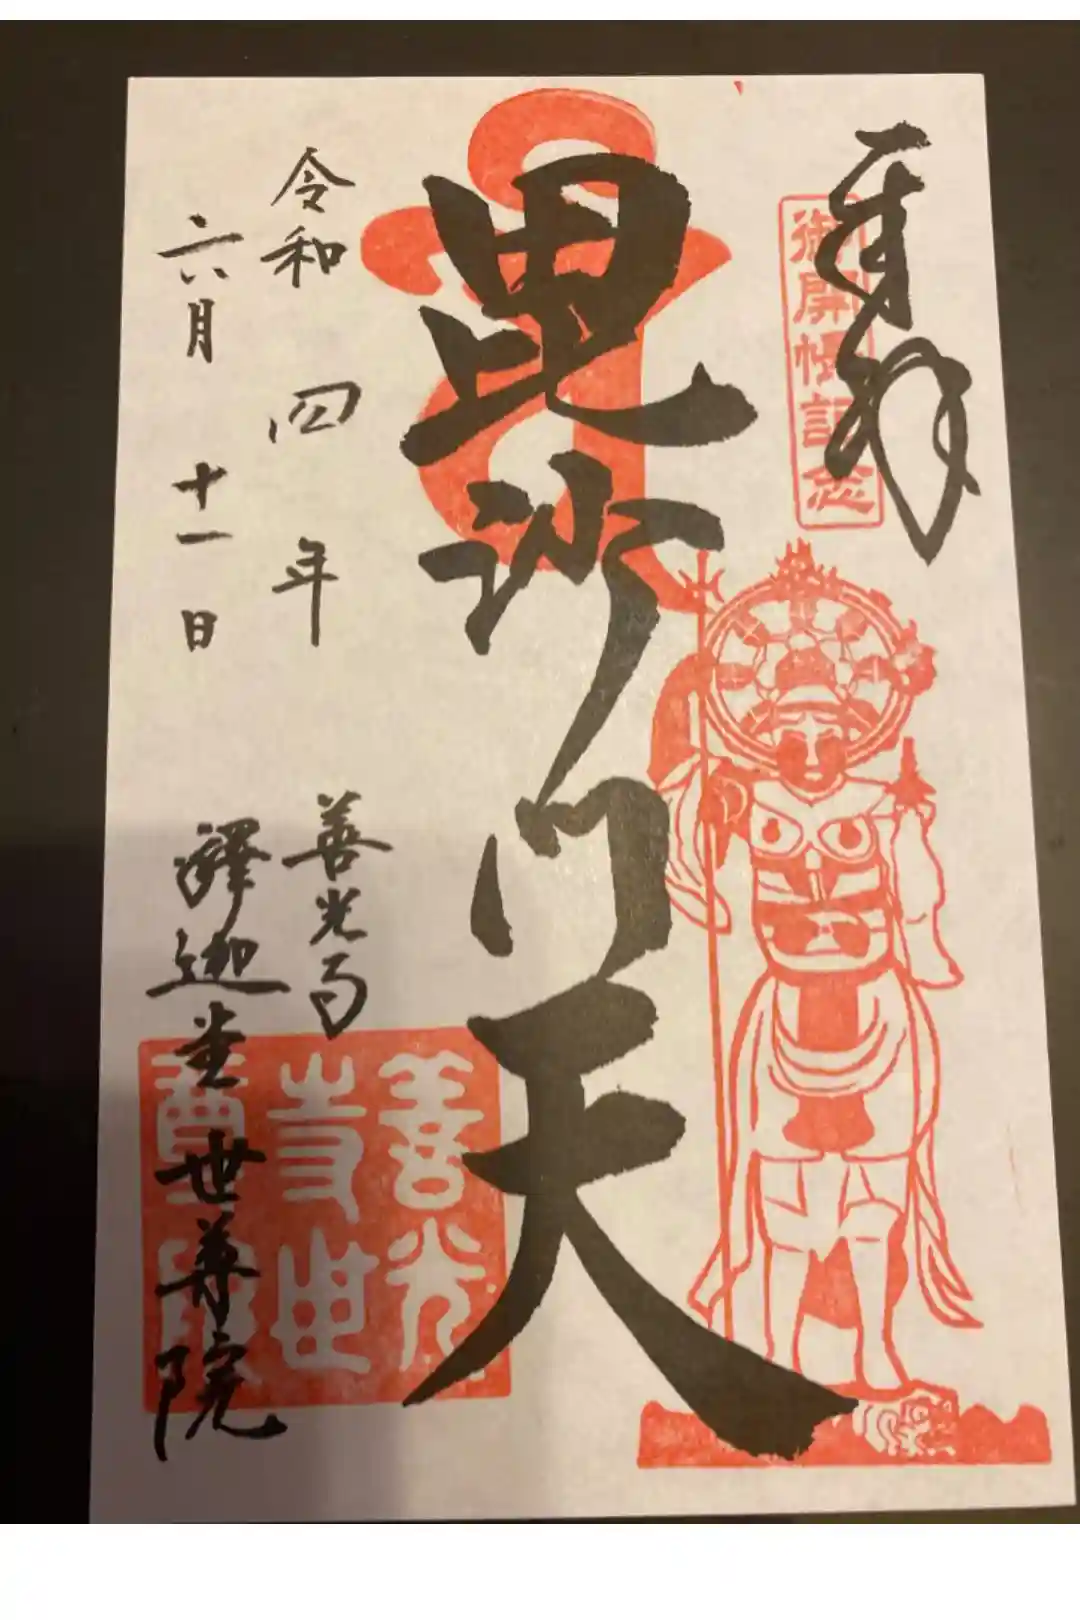 奉拝
御開帳記念
毘沙門天
令和四年
六月十一日
善光寺
釋迦堂世尊院
善光
寺世
尊院